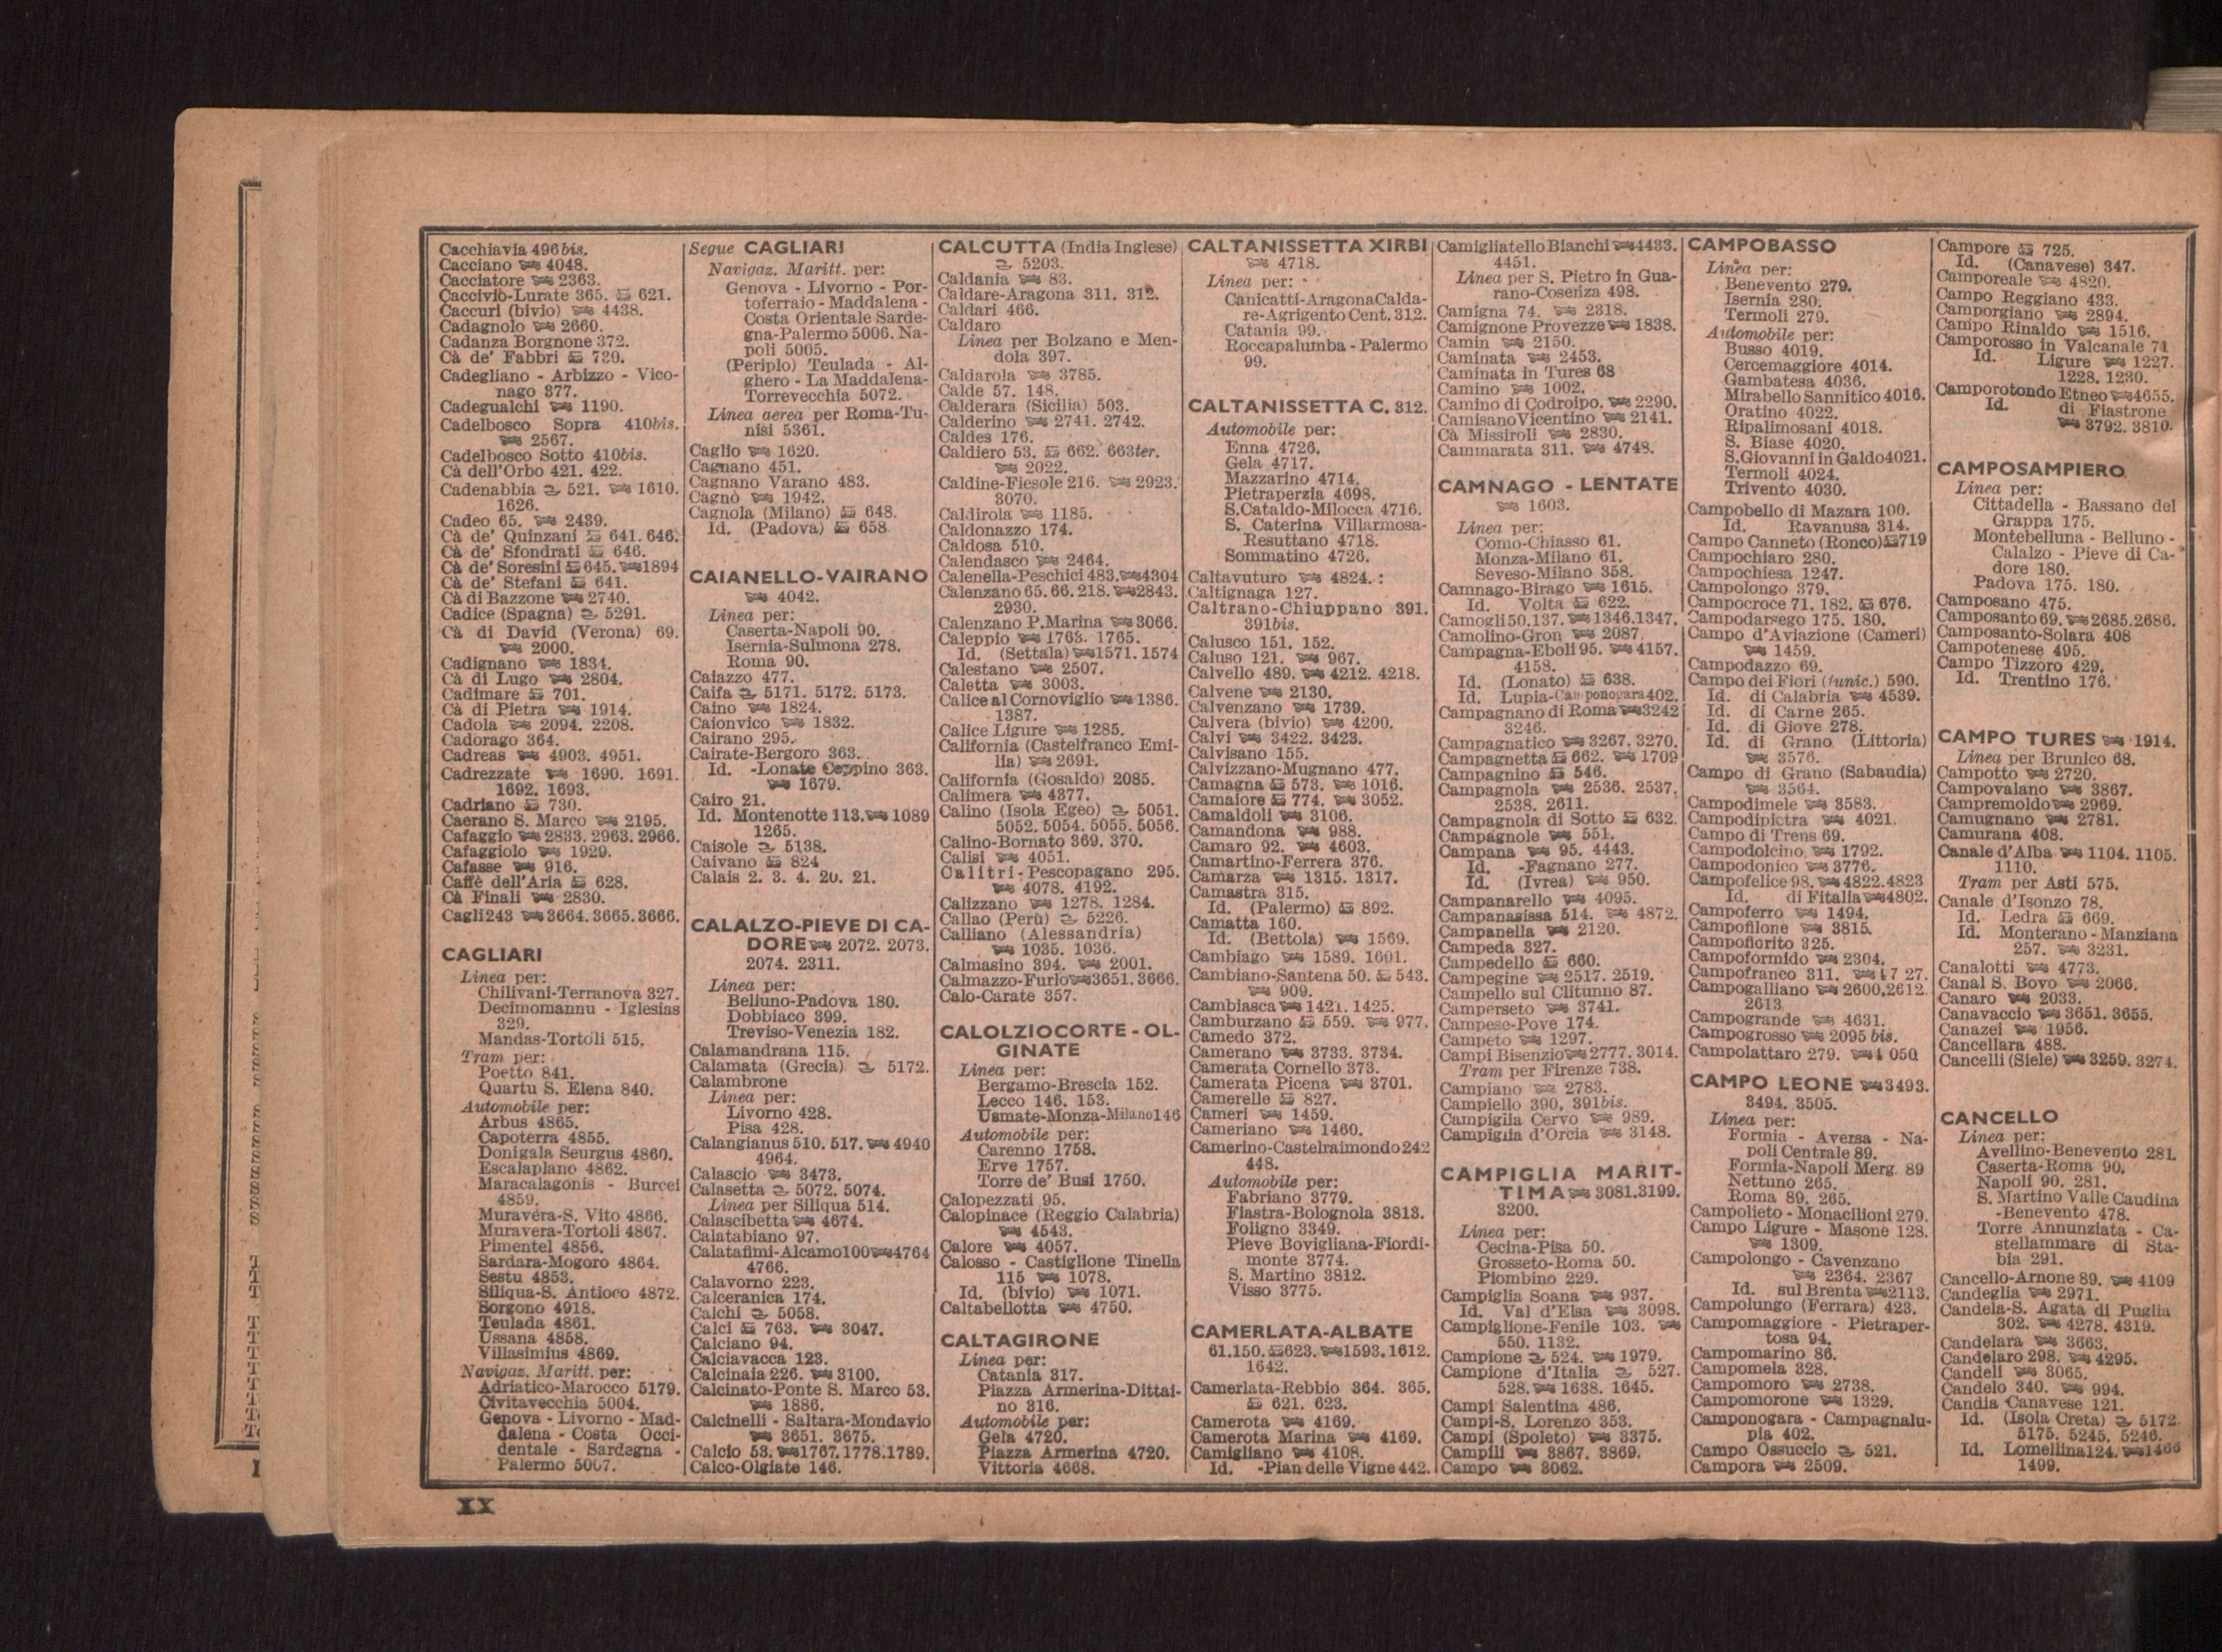 Cacchiavia 496bis.
Cacciano 4048.
Cacciatore 2363.
Caccivio-Lurate 365. 621.
Caccuri (bivio) 4438.
Cadagnolo 2660.
Cadanza Borgnone 372.
Cà de' Fabbri 730.
Cadegliano - Arbizzo - Vico-
nago 377.
Cadegualchi 1190.
Cadelbosco Sopra 410bis.
2567.
Cadelbosco Sotto 410bis.
Cà dell'Orbo 421. 422.
Cadenabbia 521. 1610.
1626.
Cadeo 65. 2439.
Cà de' Quinzani 641. 646.
Cà de' Sfondrati 646.
Cà de' Soresini 645. 1894
Cà de' Stefani 641.
Cà di Bazzone 2740.
Cadice (Spagna) 5291.
Cà di David (Verona) 69.
2000.
Cadignano 1834.
Cà di Lugo 2804.
Cadimare 701.
Cà di Pietra 1914.
Cadola 2094. 2208.
Cadorago 364.
Cadreas 4903. 4951.
Cadrezzate 1690. 1691.
1692. 1693.
Cadriano 730.
Caerano S. Marco 2195.
Cafaggio 2833. 2963. 2966.
Cafaggiolo 1929.
Cafasse 916.
Caffè dell'Aria 628.
Cà Finali 2830.
Cagli 243 3664. 3665. 3666.
CAGLIARI
Linea per:
Chilivani-Terranova 327.
Decimomannu - Iglesias
329.
Mandas-Tortoli 515.
Tram per:
Poetto 841.
Quartu S. Elena 840.
Automobile per:
Arbus 4865.
Capoterra 4855.
Donigala Seurgus 4860.
Escalaplano 4862.
Maracalagonis - Burcei
4859.
Muravera-S. Vito 4866.
Muravera-Tortoli 4867.
Pimentel 4856.
Sardara-Mogoro 4864.
Sestu 4853.
Siliqua-S. Antioco 4872.
Sorgono 4918.
Teulada 4861.
Ussana 4858.
Villasimius 4869.
Navigaz. Maritt. per:
Adriatico-Marocco 5179.
Civitavecchia 5004.
Genova - Livorno - Mad-
dalena - Costa Occi-
dentale - Sardegna -
Palermo 5007.
Segue CAGLIARI
Navigaz. Maritt. per:
Genova - Livorno - Por-
toferraio - Maddalena -
Costa Orientale Sarde-
gna-Palermo 5006. Na-
poli 5005.
(Periplo) Teulada - Al-
ghero - La Maddalena-
Torrevecchia 5072.
Linea aerea per Roma-Tu-
nisi 5361.
Caglio 1620.
Cagnano 451.
Cagnano Varano 483.
Cagnò 1942.
Cagnola (Milano) 648.
Id. (Padova) 658
CAIANELLO-VAIRANO
4042.
Linea per:
Caserta-Napoli 90.
Isernia-Sulmona 278.
Roma 90.
Caiazzo 477.
Caifa 5171. 5172. 5173.
Caino 1824.
Caionvico 1832.
Cairano 295.
Cairate-Bergoro 363.
Id. -Lonate Ceppino 363.
1679.
Cairo 21.
Id. Montenotte 113. 1089
1265.
Caisole 5138.
Caivano 824
Calais 2. 3. 4. 20. 21.
CALALZO-PIEVE DI CA-
DORE 2072. 2073.
2074. 2311.
Linea per:
Belluno-Padova 180.
Dobbiaco 399.
Treviso-Venezia 182.
Calamandrana 115.
Calamata (Grecia) 5172.
Calambrone
Linea per:
Livorno 428.
Pisa 428.
Calangianus 510. 517. 4940
4964.
Calascio 3473.
Calasetta 5072. 5074.
Linea per Siliqua 514.
Calascibetta 4674.
Calatabiano 97.
Calatafimi-Alcamo 100 4764
4766.
Calavorno 223.
Calceranica 174.
Calchi 5058.
Calci 763. 3047.
Calciano 94.
Calciavacca 123.
Calcinaia 226. 3100.
Calcinato-Ponte S. Marco 53.
1886.
Calcinelli - Saltara-Mondavio
3651. 3675.
Calcio 53. 1767. 1778. 1789.
Calco-Olgiate 146.
CALCUTTA (India Inglese)
5203.
Caldania 83.
Caldare-Aragona 311. 312.
Caldari 466.
Caldaro
Linea per Bolzano e Men-
dola 397.
Caldarola 3785.
Calde 57. 148.
Calderara (Sicilia) 503.
Calderino 2741. 2742.
Caldes 176.
Caldiero 53. 662. 663ter.
2022.
Caldine-Fiesole 216. 2923.
3070.
Caldirola 1185.
Caldonazzo 174.
Caldosa 510.
Calendasco 2464.
Calenella-Peschici 483. 4304
Calenzano 65. 66. 218. 2843.
2930.
Calenzano P. Marina 3066.
Caleppio 1763. 1765.
Id. (Settala) 1571. 1574
Calestano 2507.
Caletta 3003.
Calice al Cornoviglio 1386.
1387.
Calice Ligure 1285.
California (Castelfranco Emi-
lia) 2691.
California (Gosaldo) 2085.
Calimera 4377.
Calino (Isola Egeo) 5051.
5052. 5054. 5055. 5056.
Calino-Bornato 369. 370.
Calisi 4051.
Calitri-Pescopagano 295.
4078. 4192.
Calizzano 1278. 1284.
Callao (Perù) 5226.
Calliano (Alessandria)
1035. 1036.
Calmasino 394. 2001.
Calmazzo-Furlo 3651. 3666.
Calo-Carate 357.
CALOLZIOCORTE - OL-
GINATE
Linea per:
Bergamo-Brescia 152.
Lecco 146. 153.
Usmate-Monza-Milano 146
Automobile per:
Carenno 1758.
Erve 1757.
Torre de' Busi 1750.
Calopezzati 95.
Calopinace (Reggio Calabria)
4543.
Calore 4057.
Calosso - Castiglione Tinella
115 1078.
Id. (bivio) 1071.
Caltabellotta 4750.
CALTAGIRONE
Linea per:
Catania 317.
Piazza Armerina-Dittai-
no 316.
Automobile per:
Gela 4720.
Piazza Armerina 4720.
Vittoria 4668.
CALTANISSETTA XIRBI
4718.
Linea per:
Canicatti-Aragona Calda-
re-Agrigento Cent. 312.
Catania 99.
Roccapalumba - Palermo
99.
CALTANISSETTA C. 312.
Automobile per:
Enna 4726.
Gela 4717.
Mazzarino 4714.
Pietraperzia 4698.
S. Cataldo-Milocca 4716.
S. Caterina Villarmosa-
Resuttano 4718.
Sommatino 4726.
Caltavuturo 4824. :
Caltignaga 127.
Caltrano-Chiuppano 391.
391bis.
Calusco 151. 152.
Caluso 121. 967.
Calvello 489. 4212. 4218.
Calvene 2130.
Calvenzano 1739.
Calvera (bivio) 4200.
Calvi 3422. 3423.
Calvisano 155.
Calvizzano-Mugnano 477.
Camagna 573. 1016.
Camaiore 774. 3052.
Camaldoli 3106.
Camandona 988.
Camaro 92. 4603.
Camartino-Ferrera 376.
Camarza 1315. 1317.
Camastra 315.
Id. (Palermo) 892.
Camatta 160.
Id. (Bettola) 1569.
Cambiago 1589. 1601.
Cambiano-Santena 50. 543.
909.
Cambiasca 1421. 1425.
Camburzano 559. 977.
Camedo 372.
Camerano 3733. 3734.
Camerata Cornello 373.
Camerata Picena 3701.
Camerelle 827.
Cameri 1459.
Cameriano 1460.
Camerino-Castelraimondo 242
448.
Automobile per:
Fabriano 3779.
Fiastra-Bolognola 3813.
Foligno 3349.
Pieve Bovigliana-Fiordi-
monte 3774.
S. Martino 3812.
Visso 3775.
CAMERLATA-ALBATE
61. 150. 623. 1593. 1612.
1642.
Camerlata-Rebbio 364. 365.
621. 623.
Camerota 4169.
Camerota Marina 4169.
Camigliano 4108.
Id. -Pian delle Vigne 442.
Camigliatello Bianchi 4433.
4451.
Linea per S. Pietro in Gua-
rano-Cosenza 498.
Camigna 74. 2318.
Camignone Provezze 1838.
Camin 2150.
Caminata 2453.
Caminata in Tures 68
Camino 1002.
Camino di Codroipo. 2290.
Camisano Vicentino 2141.
Cà Missiroli 2830.
Cammarata 311. 4748.
CAMNAGO - LENTATE
1603.
Linea per:
Como-Chiasso 61.
Monza-Milano 61.
Seveso-Milano 358.
Camnago-Birago 1615.
Id. Volta 622.
Camogli 50. 137. 1346. 1347.
Camolino-Gron 2087.
Campagna-Eboli 95. 4157.
4158.
Id. (Lonato) 638.
Id. Lupia-Camponogara 402.
Campagnano di Roma 3242
3246.
Campagnatico 3267. 3270.
Campagnetta 662. 1709
Campagnino 546.
Campagnola 2536. 2537.
2538. 2611.
Campagnola di Sotto 632.
Campagnole 551.
Campana 95. 4443.
Id. -Fagnano 277.
Id. (Ivrea) 950.
Campanarello 4095.
Campanasissa 514. 4872.
Campanella 2120.
Campeda 327.
Campedello 660.
Campegine 2517. 2519.
Campello sul Clitunno 87.
Camperseto 3741.
Campese-Pove 174.
Campeto 1297.
Campi Bisenzio 2777. 3014.
Tram per Firenze 738.
Campiano 2783.
Campiello 390. 391bis.
Campiglia Cervo 989.
Campiglia d'Orcia 3148.
CAMPIGLIA MARIT-
TIMA 3081. 3199.
3200.
Linea per:
Cecina-Pisa 50.
Grosseto-Roma 50.
Piombino 229.
Campiglia Soana 937.
Id. Val d'Elsa 3098.
Campiglione-Fenile 103.
550. 1132.
Campione 524. 1979.
Campione d'Italia 527.
528. 1638. 1645.
Campi Salentina 486.
Campi-S. Lorenzo 353.
Campi (Spoleto) 3375.
Campili 3867. 3869.
Campo 3062.
CAMPOBASSO
Linea per:
Benevento 279.
Isernia 280.
Termoli 279.
Automobile per:
Busso 4019.
Cercemaggiore 4014.
Gambatesa 4036.
Mirabello Sannitico 4016.
Oratino 4022.
Ripalimosani 4018.
S. Biase 4020.
S. Giovanni in Galdo 4021.
Termoli 4024.
Trivento 4030.
Campobello di Mazara 100.
Id. Ravanusa 314.
Campo Canneto (Ronco) 719
Campochiaro 280.
Campochiesa 1247.
Campolongo 379.
Campocroce 71. 182. 676.
Campodarsego 175. 180.
Campo d'Aviazione (Cameri)
1459.
Campodazzo 69.
Campo dei Fiori (funic.) 590.
Id. di Calabria 4539.
Id. di Carne 265.
Id. di Giove 278.
Id. di Grano (Littoria)
3576.
Campo di Grano (Sabaudia)
3564.
Campodimele 3583.
Campodipietra 4021.
Campo di Trens 69.
Campodolcino 1792.
Campodonico 3776.
Campofelice 98. 4822. 4823
Id. di Fitalia 4802.
Campoferro 1494.
Campofilone 3815.
Campofiorito 325.
Campoformido 2304.
Campofranco 311. 27.
Campogalliano 2600. 2612.
2613.
Campogrande 4631.
Campogrosso 2095 bis.
Campolattaro 279. 050
CAMPO LEONE 3493.
3494. 3505.
Linea per:
Formia - Aversa - Na-
poli Centrale 89.
Formia-Napoli Merg. 89
Nettuno 265.
Roma 89. 265.
Campolieto - Monacilioni 279.
Campo Ligure - Masone 128.
1309.
Campolongo - Cavenzano
2364. 2367
Id. sul Brenta 2113.
Campolungo (Ferrara) 423.
Campomaggiore - Pietraper-
tosa 94.
Campomarino 86.
Campomela 328.
Campomoro 2738.
Campomorone 1329.
Camponogara - Campagnalu-
pia 402.
Campo Ossuccio 521.
Campora 2509.
Campore 725.
Id. (Canavese) 347.
Camporeale 4820.
Campo Reggiano 433.
Camporgiano 2894.
Campo Rinaldo 1516.
Camporosso in Valcanale 71
Id. Ligure 1227.
1228. 1230.
Camporotondo Etneo 4655.
Id. di Fiastrone
3792. 3810.
CAMPOSAMPIERO
Linea per:
Cittadella - Bassano del
Grappa 175.
Montebelluna - Belluno -
Calalzo - Pieve di Ca-
dore 180.
Padova 175. 180.
Camposano 475.
Camposanto 69. 2685. 2686.
Camposanto-Solara 408
Campotenese 495.
Campo Tizzoro 429.
Id. Trentino 176.
CAMPO TURES 1914.
Linea per Brunico 68.
Campotto 2720.
Campovalano 3867.
Campremoldo 2969.
Camugnano 2781.
Camurana 408.
Canale d'Alba 1104. 1105.
1110.
Tram per Asti 575.
Canale d'Isonzo 78.
Id. Ledra 669.
Id. Monterano - Manziana
257. 3231.
Canalotti 4773.
Canal S. Bovo 2066.
Canaro 2033.
Canavaccio 3651. 3655.
Canazei 1956.
Cancellara 488.
Cancelli (Siele) 3259. 3274.
CANCELLO
Linea per:
Avellino-Benevento 281.
Caserta-Roma 90.
Napoli 90. 281.
S. Martino Valle Caudina
-Benevento 478.
Torre Annunziata - Ca-
stellammare di Sta-
bia 291.
Cancello-Arnone 89. 4109
Candeglia 2971.
Candela-S. Agata di Puglia
302. 4278. 4319.
Candelara 3663.
Candelaro 298. 4295.
Candeli 3065.
Candelo 340. 994.
Candia Canavese 121.
Id. (Isola Creta) 5172.
5175. 5245. 5246.
Id. Lomellina 124. 1466
1499.
XX